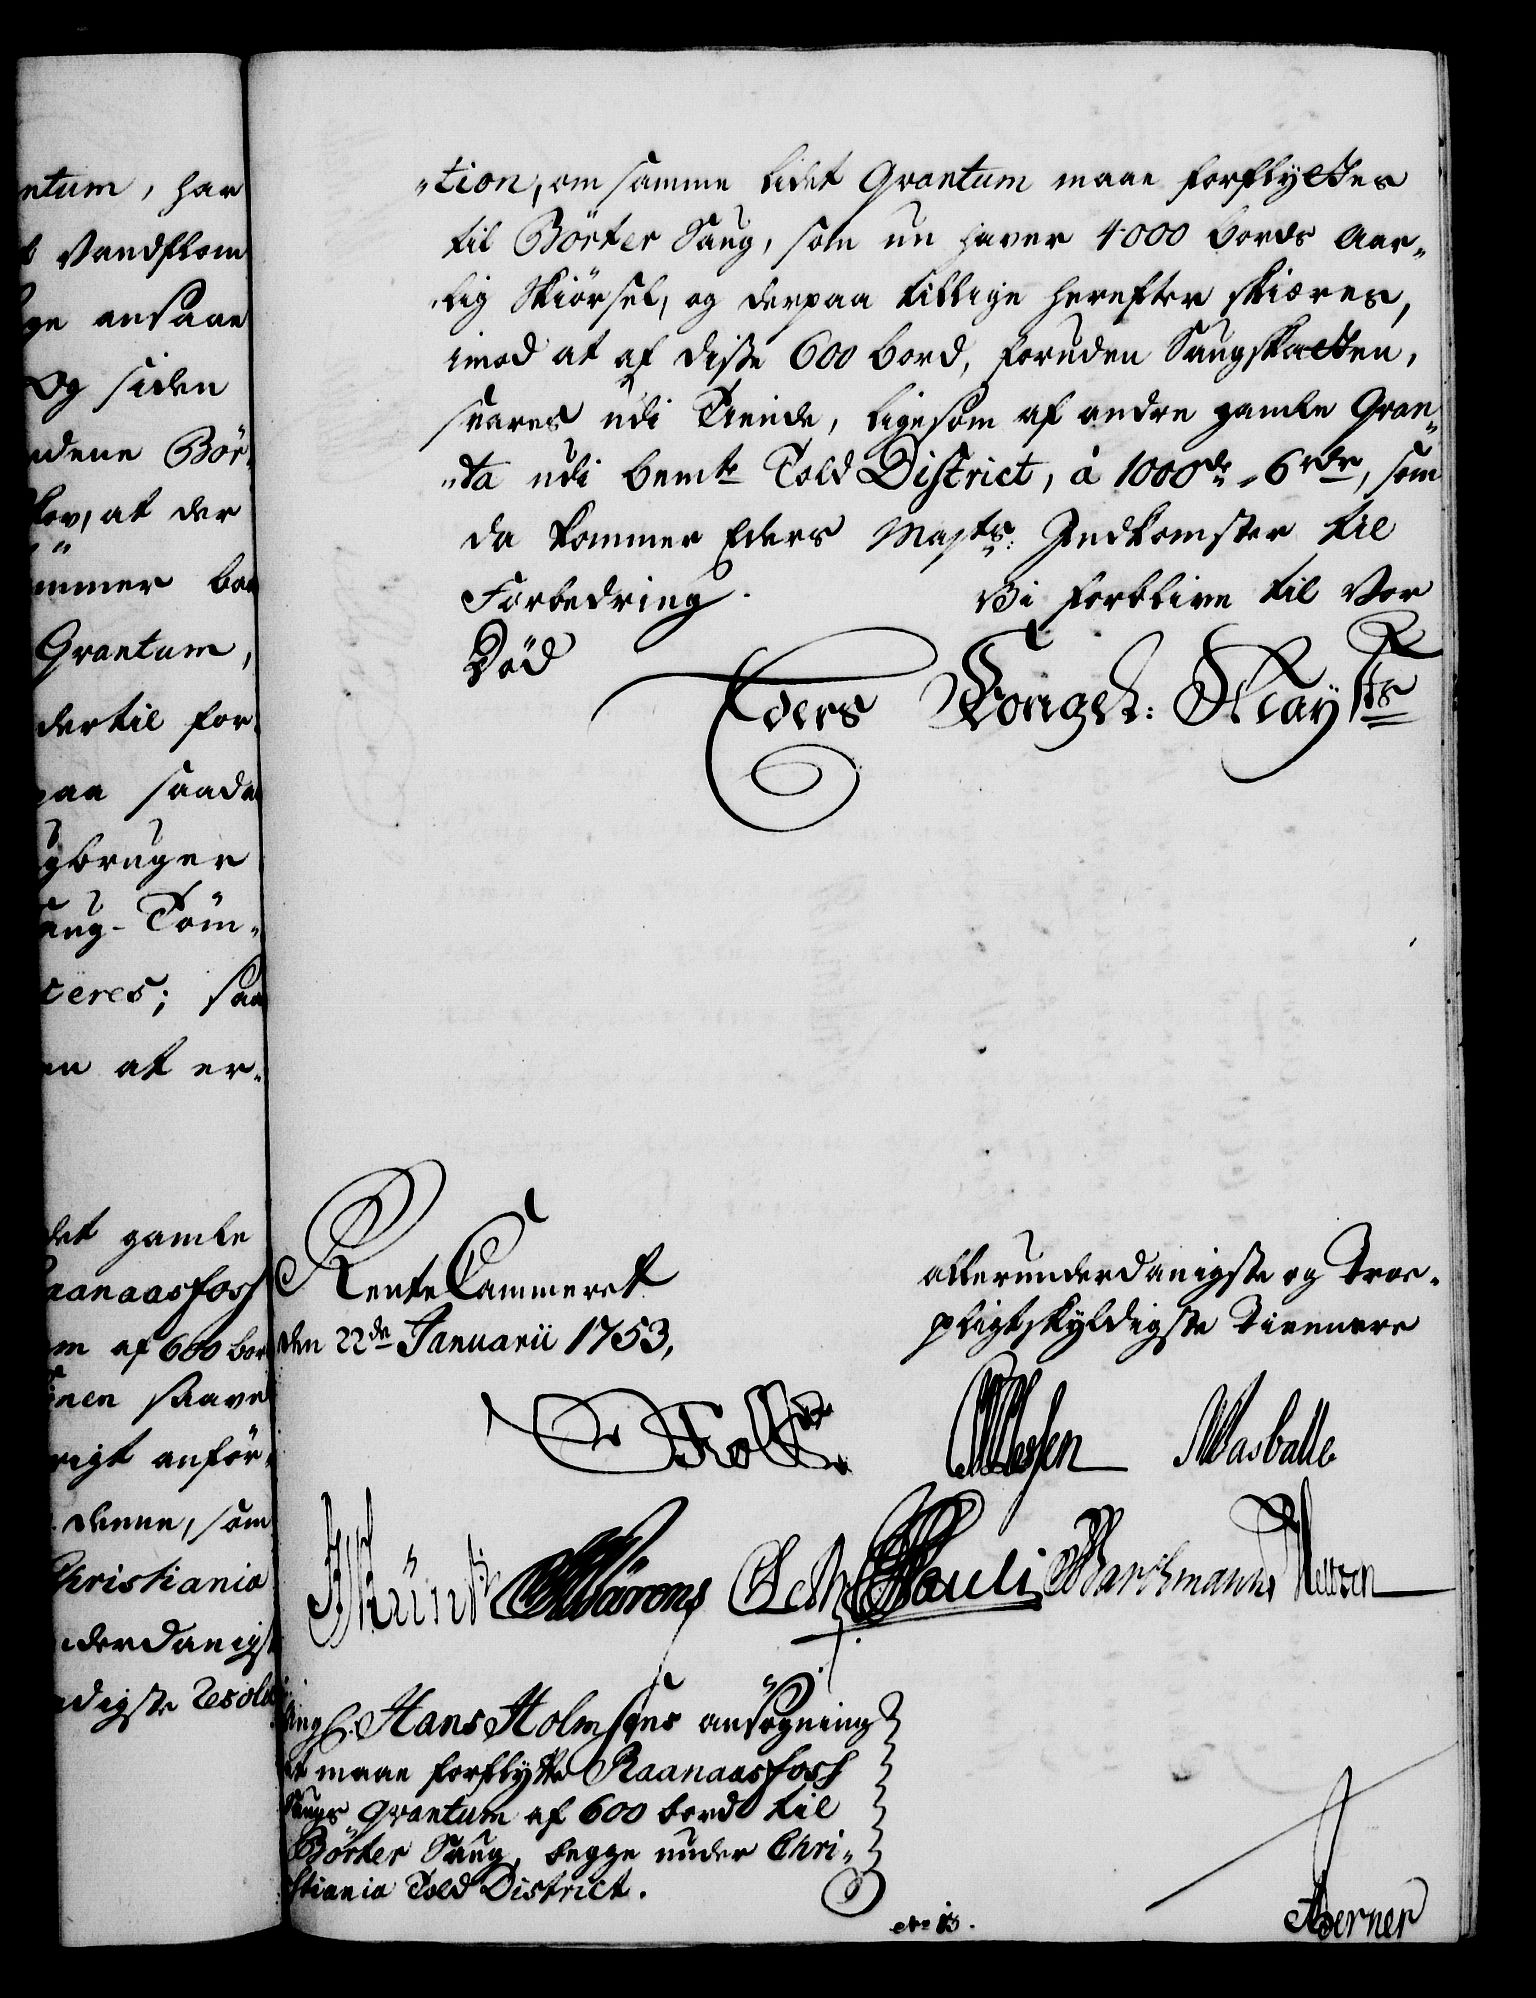 ntum, har
t Vandflom
ge ansaae
Og siden
dene Bör-
lov, at der
ommer bor
Qvantum,
dertil for-
paa saada
gbruger
Saug-Töm-
teres; saa
en at er-
det gamle
Raanaasfoss
m af 600 bor
nen saavel
rigt anför-
denne, som
Christiania
derdanigst
digste Resolu
"tion, om samme lidet Qvantum maae forflyttes
til Börter Saug, som nu haver 4000 bords aar-
"lig Skiørsel, og derpaa tillige herefter skiæres,
imod at af disse 600 bord, foruden Saugskatten,
svares udi Tiende, ligesom af andre gamle Qvan-
"ta udi bemte Told District, à 1000de 6 rdr, som
da kommer Eders Majts: Indkomster til
Forbedring. Vi forblive til Vor
Död
Eders Kongel: Mayts
RenteCammeret
den 22de Januarii 1753,
allerunderdanigste og Troe-
pligtskyldigste Tienere
Holst
Wessen Masballe
Pauli Barchmann
Hans Holmsens ansøgning
at maae forflytte Raanaasfoss
Saugs Qvantum af 600 bord til
Börter Saug, begge under Chri-
stiania Told District.
No 13.
Berner